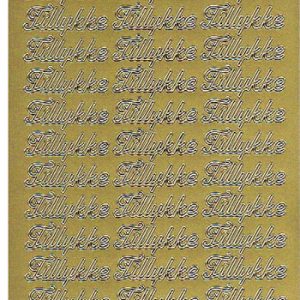 Tillykke Tillykke Tillykke
Tillykke Tillykke Tillykke
Tillykke Tillykke Tillykke
Tillykke Tillykke Tillykke
Tillykke Tillykke Tillykke
Tillykke Tillykke Tillykke
Tillykke Tillykke Tillykke
Tillykke Tillykke Tillykke
Tillykke Tillykke Tillykke
Tillykke Tillykke Tillykke